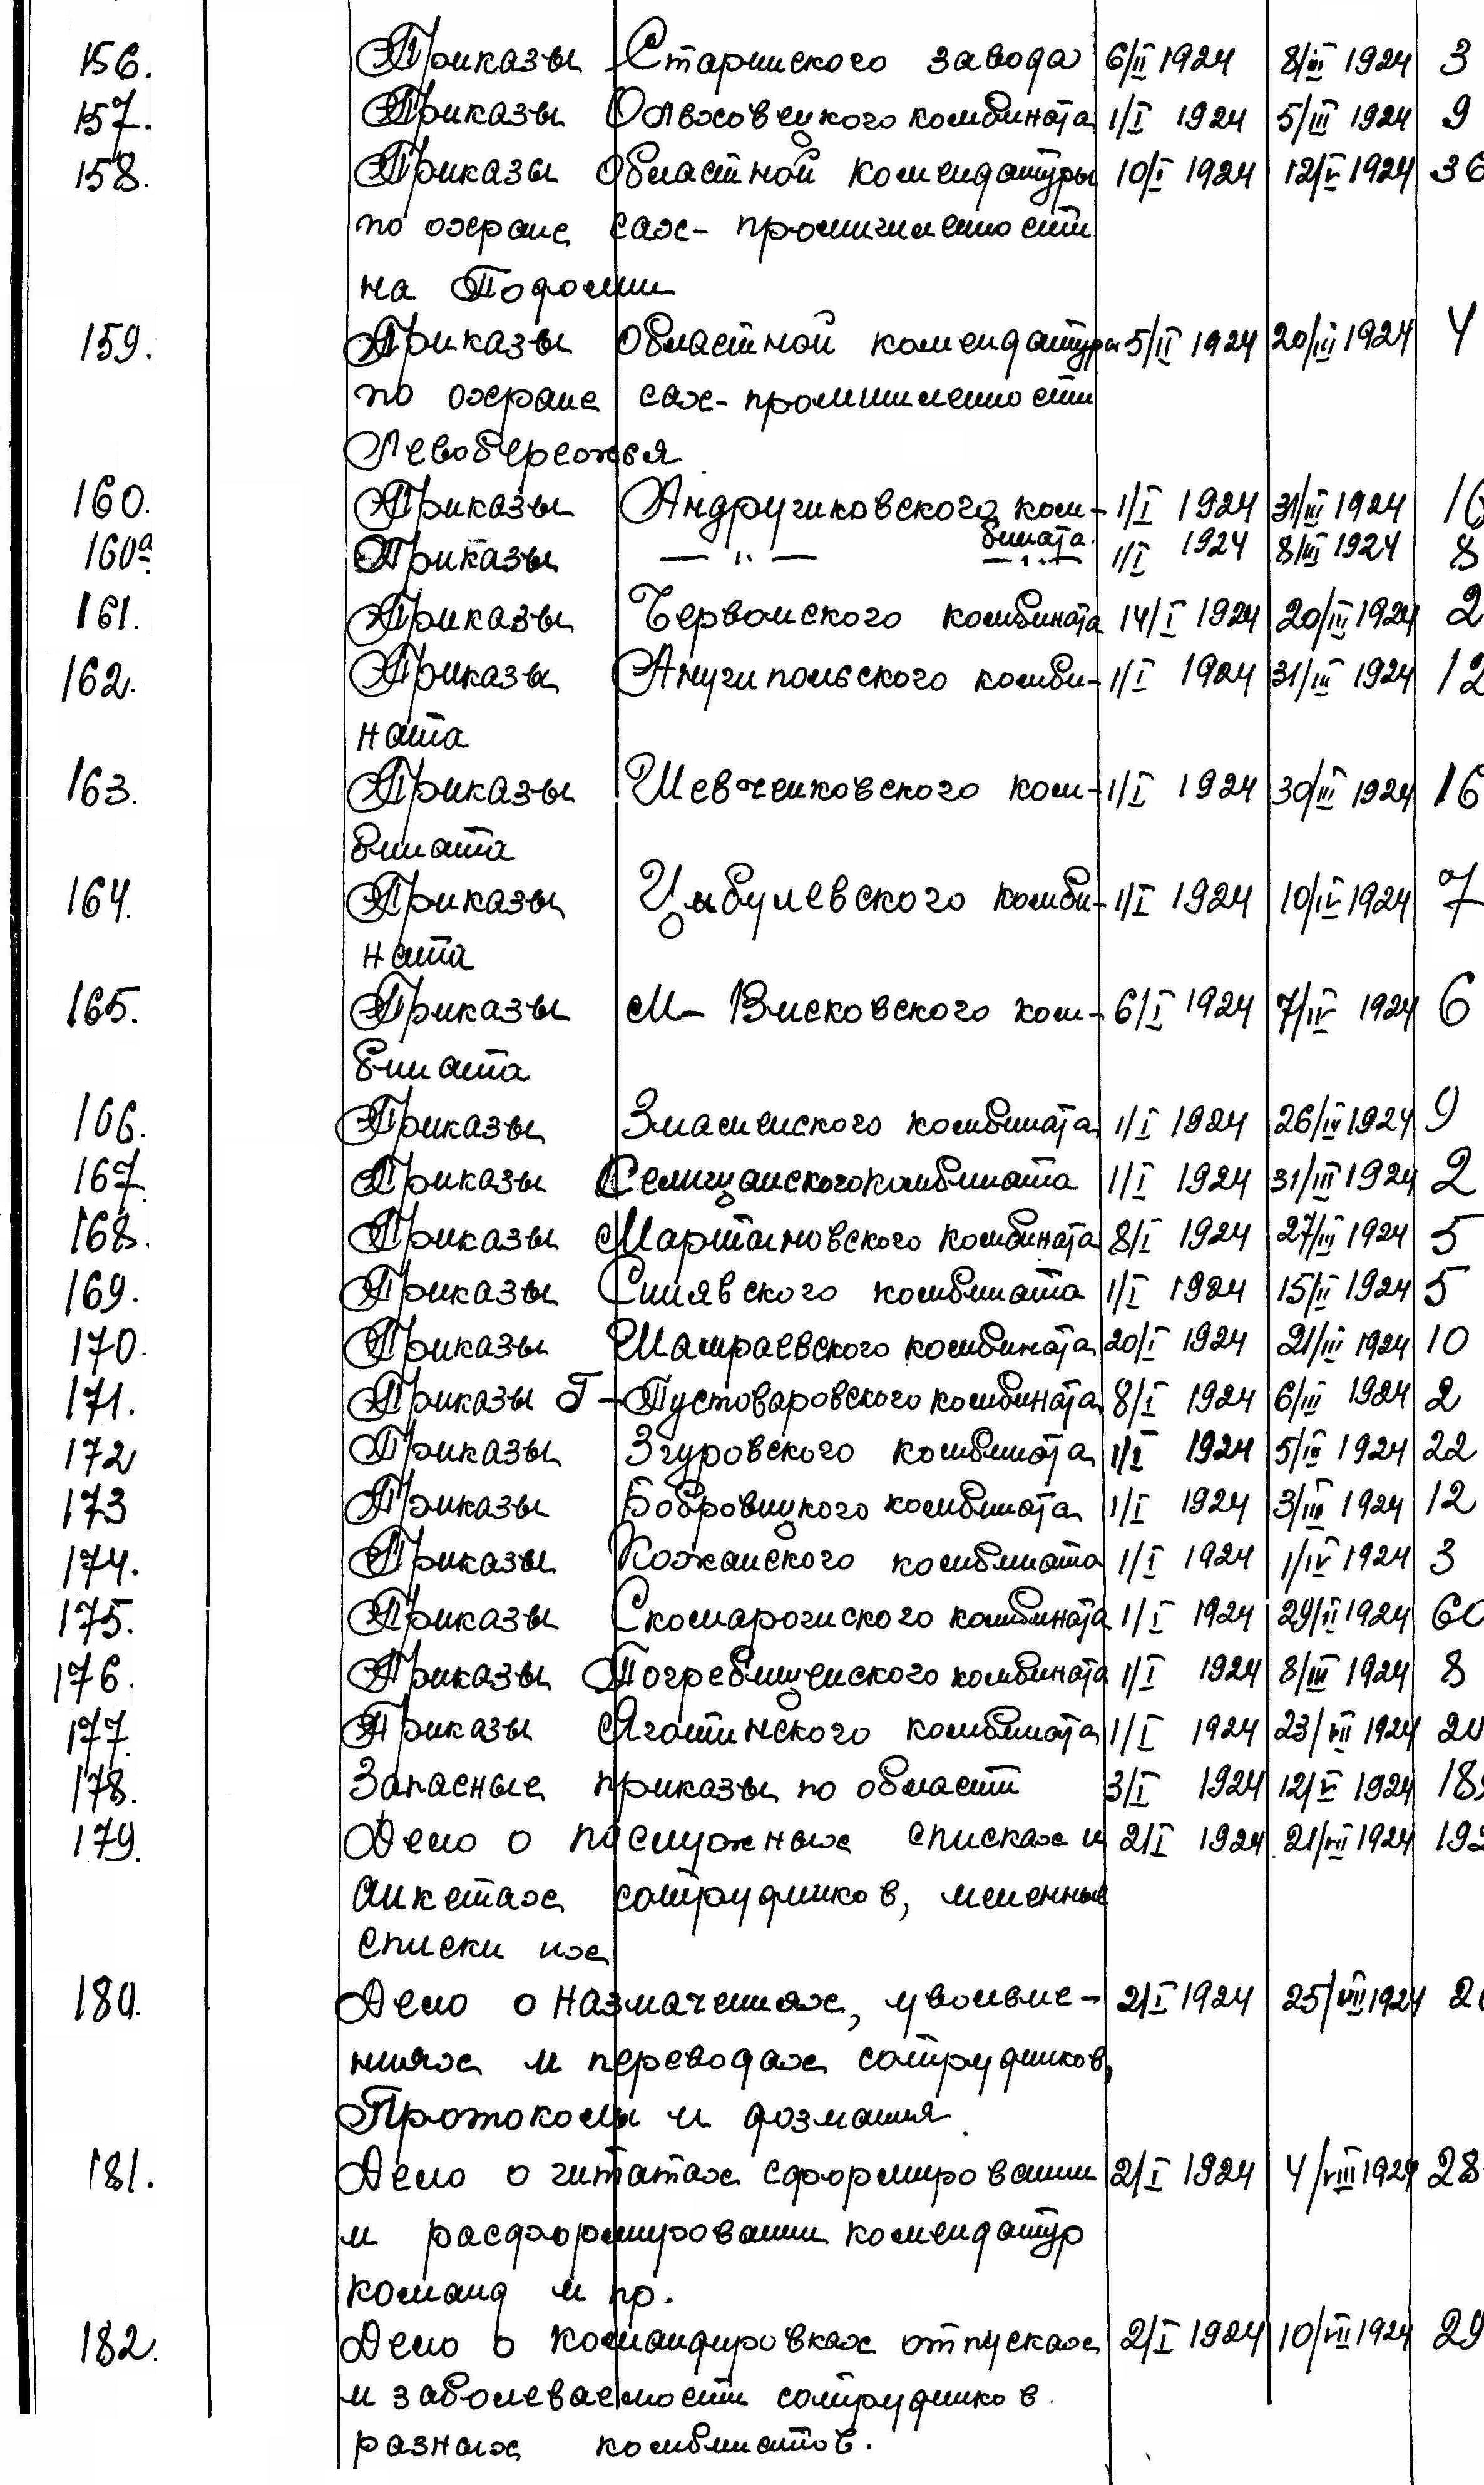 156. Приказы Старинского завода 6/II 1924 8/III 1924 3
157. Приказы Ольховецкого комбината 1/I 1924 5/III 1924 9
158. Приказы Областной комендатуры 10/I 1924 12/V 1924 36
по охране сах-промышленности
на Подолии
159. Приказы областной комендатуры 5/II 1924 20/III 1924 4
по охране сах-промышленности
Левобережья
160. Приказы Андрушковского ком- 1/I 1924 31/III 1924 16
бината.
160а Приказы — " — — " — 1/I 1924 8/III 1924 8
161. Приказы Червонского комбината 14/I 1924 20/III 1924 2
162. Приказы Аннупольского комби- 1/I 1924 31/III 1924 12
ната
163. Приказы Шевченковского ком- 1/I 1924 30/III 1924 16
бината
164. Приказы Цыбулевского комби- 1/I 1924 10/IV 1924 7
ната
165. Приказы М-Висковского ком- 6/I 1924 7/IV 1924 6
бината
166. Приказы Знаменского комбината 1/I 1924 26/IV 1924 9
167. Приказы Селищанского комбината 1/I 1924 31/III 1924 2
168. Приказы Мартыновского комбината 8/I 1924 27/III 1924 5
169. Приказы Синявского комбината 1/I 1924 15/II 1924 5
170. Приказы Шамраевского комбината 20/I 1924 21/III 1924 10
171. Приказы Г-Пустоваровского комбината 8/I 1924 6/III 1924 2
172 Приказы Згуровского комбината 1/I 1924 5/III 1924 22
173 Приказы Бобровицкого комбината 1/I 1924 3/III 1924 12
174. Приказы Кожанского комбината 1/I 1924 1/IV 1924 3
175. Приказы Скоморошского комбината 1/I 1924 29/II 1924 60
176. Приказы Погребищенского комбината 1/I 1924 8/III 1924 8
177. Приказы Яготинского комбината 1/I 1924 23/VII 1924
178. Запасные приказы по области 3/I 1924 12/V 1924
179. Дело о послужных списках и 2/I 1924 21/VII 1924
анкетах сотрудников, именные
списки их
180. Дело о назначениях, увольне- 2/I 1924 25/VII 1924
ниях и переводах сотрудников,
Протоколы и дознания.
181. Дело о штатах сформировании 2/I 1924 4/VIII 1924 28
и расформировании комендатур
команд и пр.
182. Дело о командировках отпусках 2/I 1924 10/VII 1924 29
и заболеваемости сотрудников
разных комбинатов.